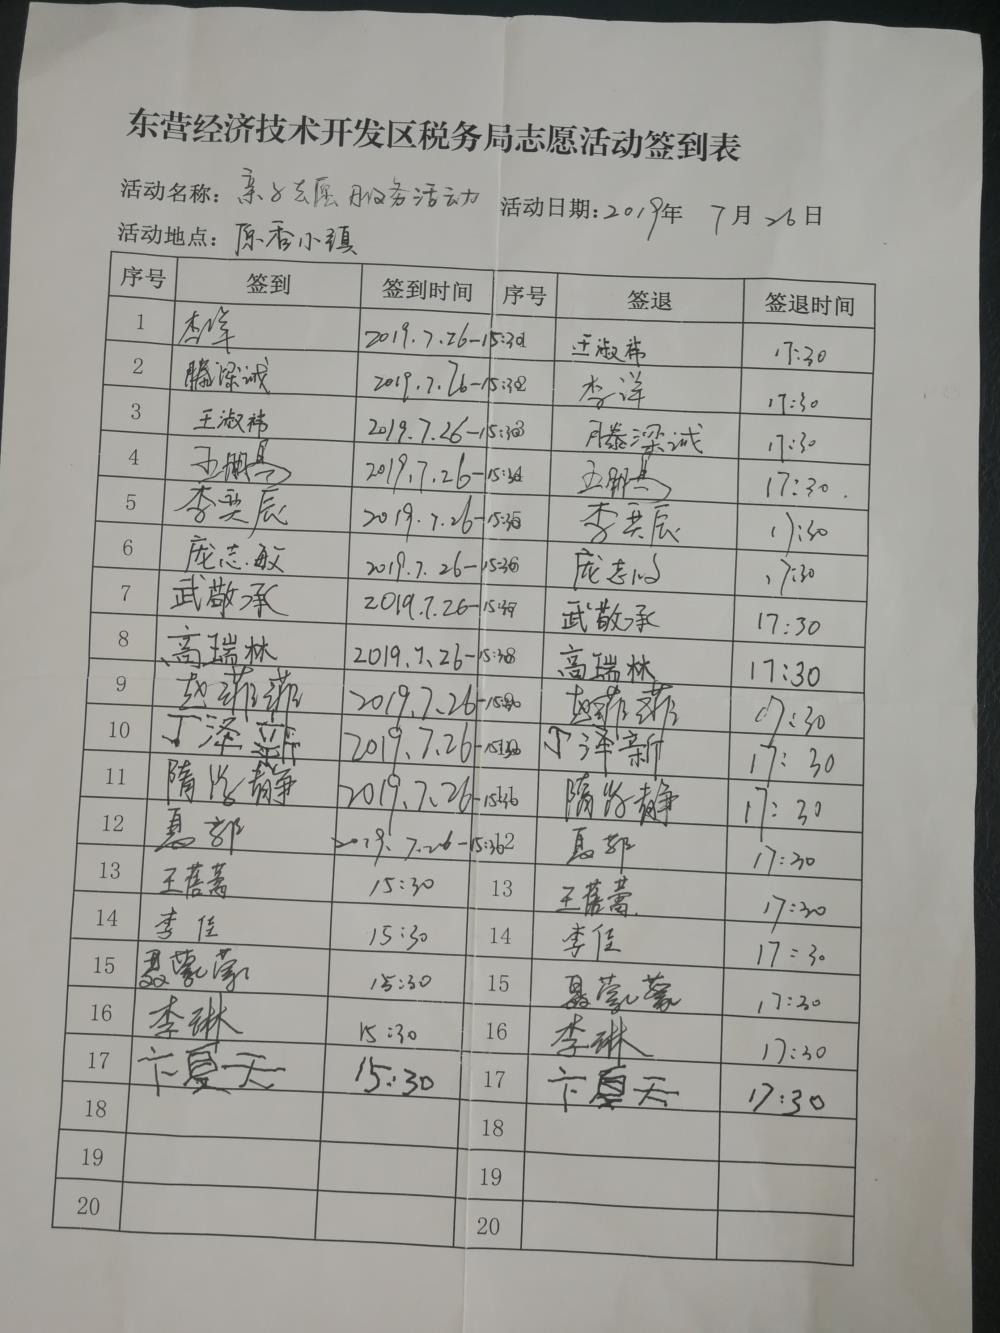 东营经济技术开发区税务局志愿活动签到表
活动名称：亲子志愿服务活动 活动日期：2019年 7月26日
活动地点：原香小镇
序号 签到 签到时间 序号 签退 签退时间
1 李洋 2019.7.26-15:30 王淑祎 17:30
2 滕深诚 2019.7.26-15:30 李洋 17:30
3 王淑祎 2019.7.26-15:30 滕深诚 17:30
4 2019.7.26-15:30 17:30.
5 李奕辰 2019.7.26-15:30 李奕辰 17:30
6 庞志敏 2019.7.26-15:30 庞志 17:30
7 武敬承 2019.7.26-15:30 武敬承 17:30
8 高瑞林 2019.7.26-15:30 高瑞林 17:30
9 赵菲菲 2019.7.26-15:30 赵菲菲 17:30
10 丁泽新 2019.7.26-15:30 丁泽新 17:30
11 隋 静 2019.7.26-15:36 隋 静 17:30
12 2019.7.26-15:36 12 17:30
13 王蓓蕾 15:30 13 王蓓蕾 17:30
14 李佳 15:30 14 李佳 17:30
15 聂蒙蒙 15:30 15 聂蒙蒙 17:30
16 李琳 15:30 16 李琳 17:30
17 卞夏天 15:30 17 卞夏天 17:30
18 18
19 19
20 20